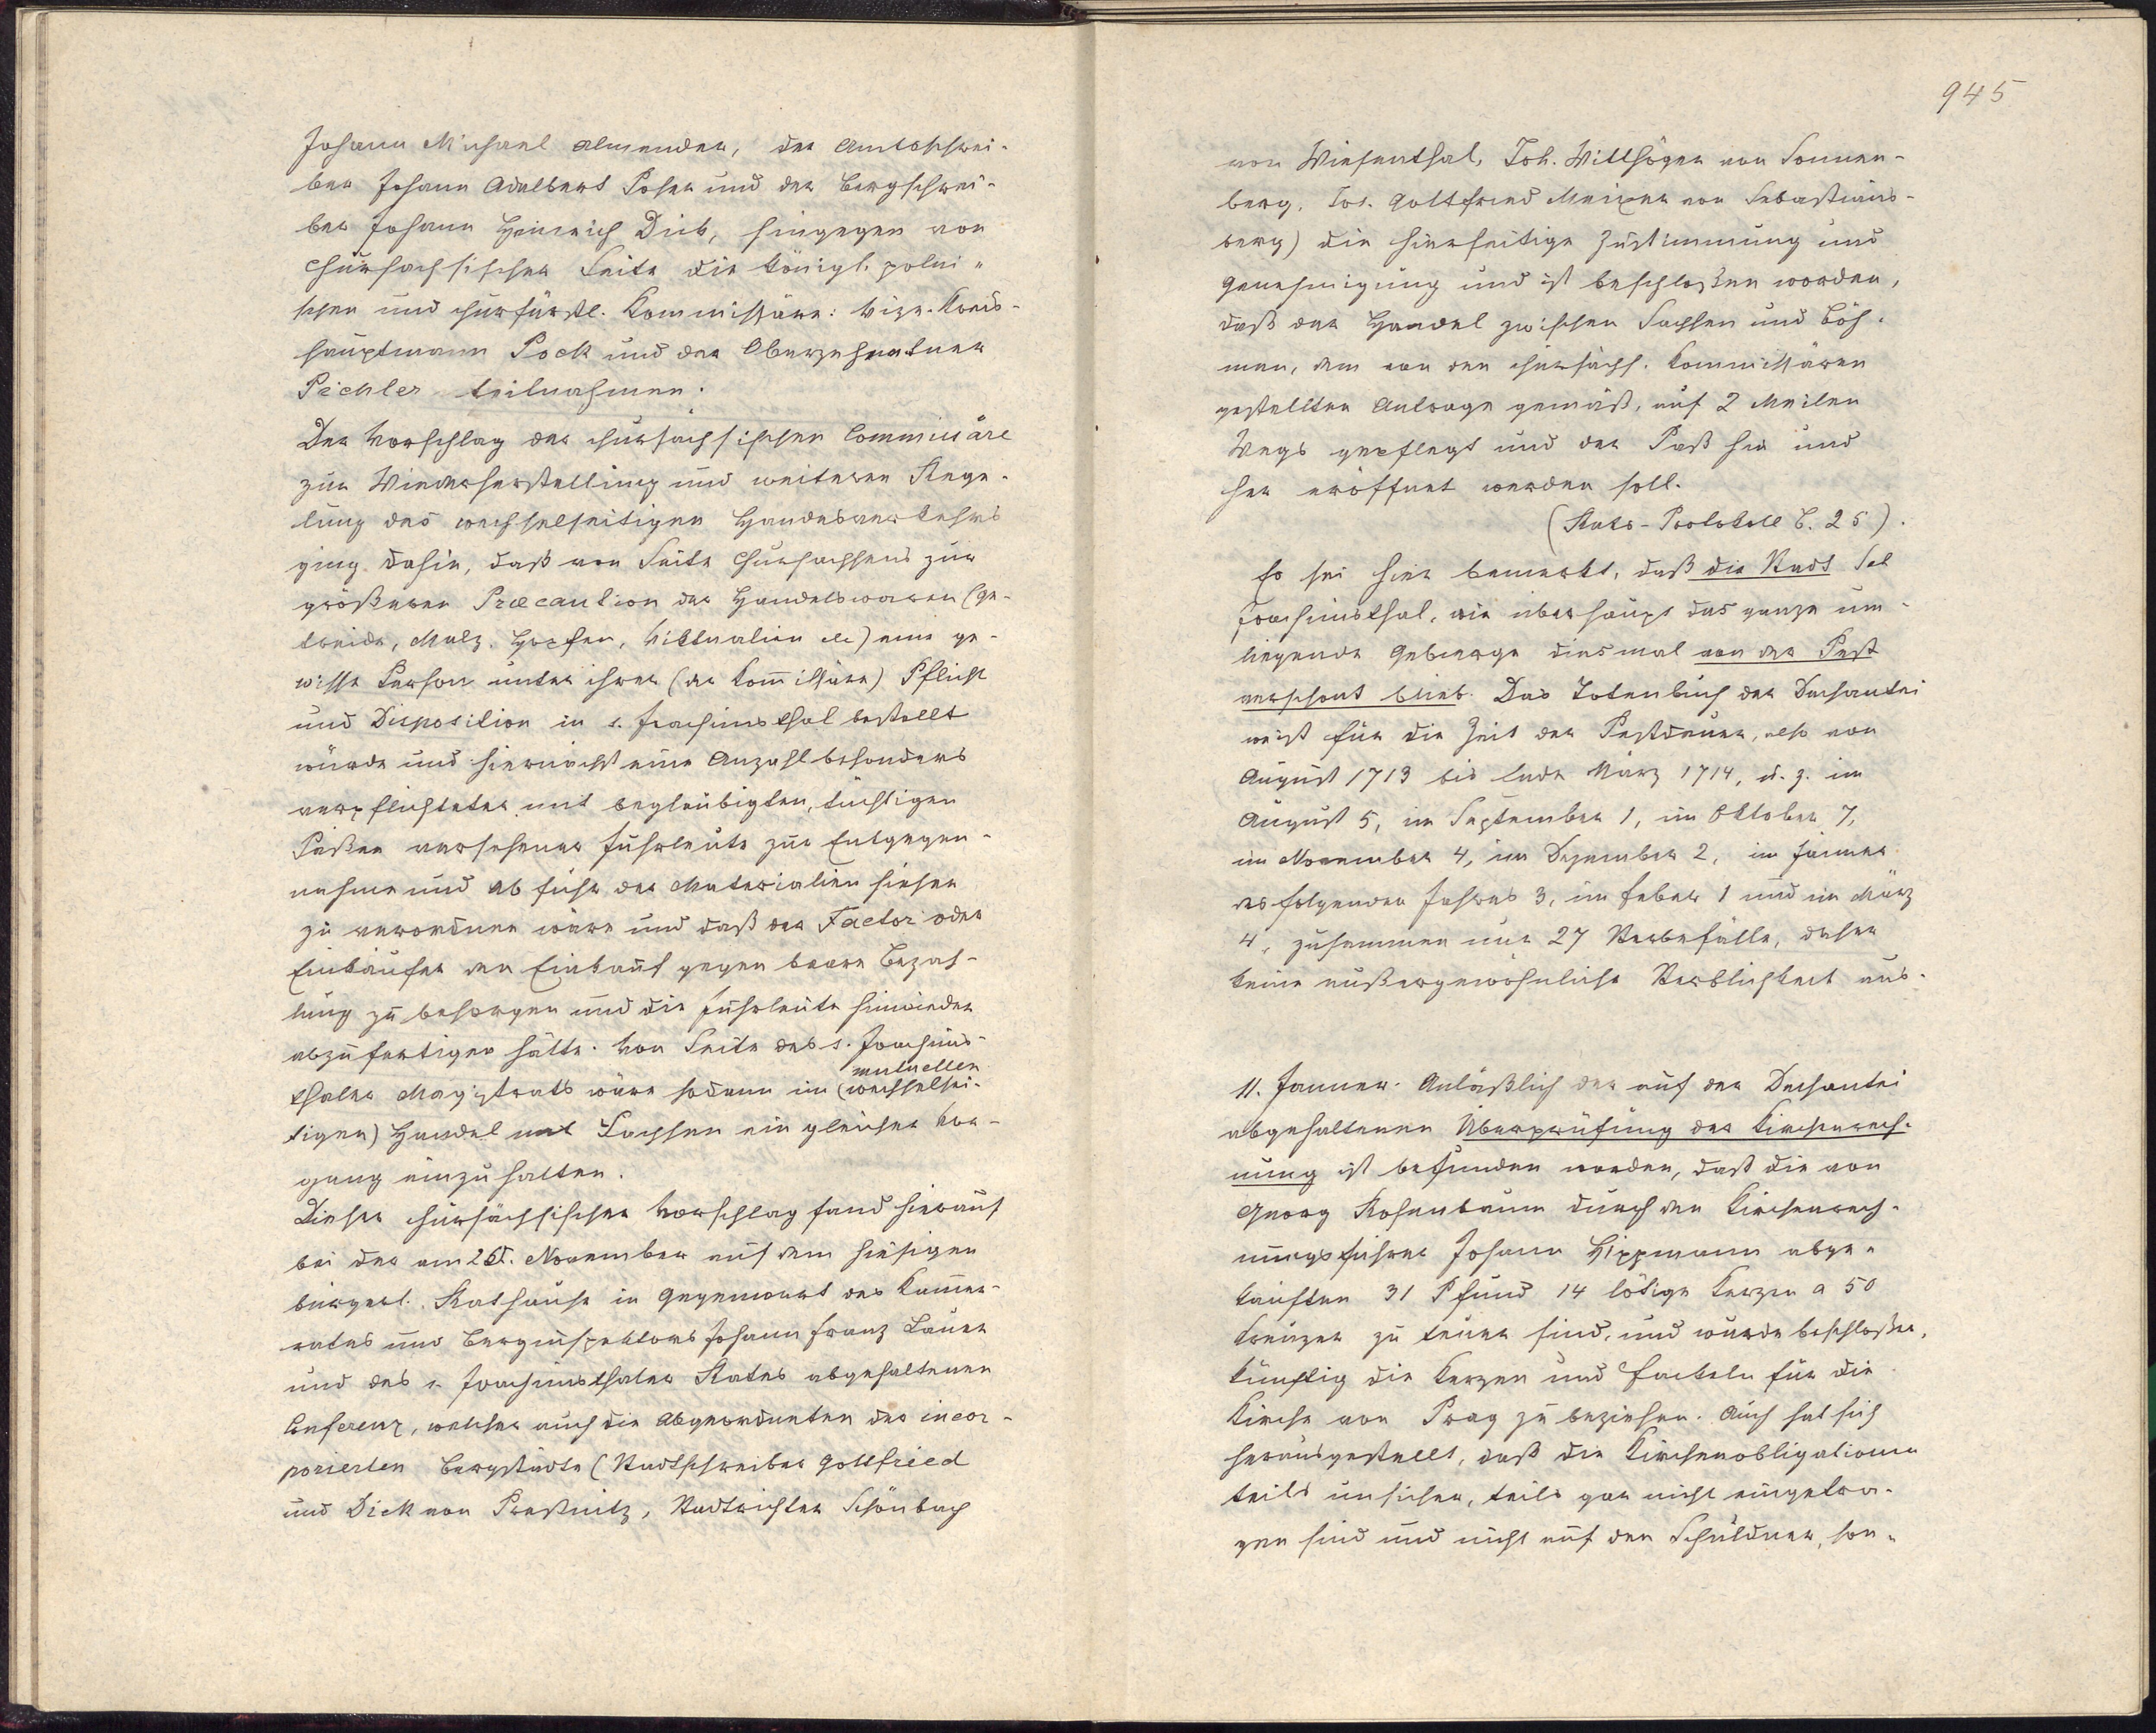 Johann Michael Almender, der Amtsschrei-
ber Johann Adalbert Poser und der Bergschrei-
ber Johann Heinrich Dick, hingegen von
chursachsischer Seite die königl. polni-
schen und churfürstl. Kommissäre: Vize-Kreis-
hauptmann Pock und der Oberzehentner
Pichler teilnahmen.
Der Vorschlag der chursächsischen Commissäre
zur Wiederherstellung und weiteren Rege-
lung des wechselseitigen Handesverkehrs
ging dahin, daß von Seite Chursachsens zur
größeren Præcaution der Handelswaren (Ge-
treide, Malz, Hopfen, Viktualien etc) eine ge-
wisse Person unter ihrer (der Kom̅issäre) Pflicht
und Disposition in s. Joachimsthal bestellt
würde und hiernächst eine Anzahl besonders
verpflichteter mit beglaubigten, tüchtigen
Päßen versehener Fuhrleute zur Entgegen-
nahme und Abfuhr der Materialien hieher
zu verordnen wäre und daß der Factor oder
Einkäufer den Einkauf gegen baare Bezah-
lung zu besorgen und die Fuhrleute hinwieder
abzufertigen hätte. Von Seite des s. Joachims-
mutuellen
thaler Magistrats wäre sodann im (wechselsei-
tigen) Handel mit Sachsen ein gleicher Vor-
gang einzuhalten.
Dieser chursächsischer Vorschlag fand hierauf
bei der am 26. November auf dem hiesigen
bürgerl. Rathause in Gegenwart des Kam̅er-
rates und Berginspektors Johann Franz Lauer
und des s. Joachimsthaler Rates abgehaltenen
Conferenz, welcher auch die Abgeordneten der incor-
porierten Bergstädte (Stadtschreiber Gottfried
und Dick von Preßnitz, Stadtrichter Schönbach
945
von Wiesenthal, Joh. Willhöger von Sonnen-
berg, Jos. Gottfried Meixner von Sebastians-
berg) die hierseitige Zustimmung und
Genehmigung und ist beschloßen worden,
daß der Handel zwischen Sachsen und Böh-
men, dem von den chursächs. Kommissären
gestellten Antrage gemäß, auf 2 Meilen
Wegs gepflegt und der Paß hin und
her eröffnet werden soll.
(Rats-Protokoll S. 25).
Es sei hier bemerkt, daß die Stadt Sct
Joachimsthal, wie überhaupt das ganze um-
liegende Gebierge diesmal von der Pest
verschont blieb. Das Totenbuch der Dechantei
weist für die Zeit der Pestdauer, also von
August 1713 bis Ende März 1714, u. z. im
August 5, im September 1, im Oktober 7,
im November 4, im Dezember 2, im Jänner
des folgenden Jahres 3, im Feber 1 und im März
4, zusammen nur 27 Sterbefälle, daher
keine außergewöhnliche Sterblichkeit aus.
11. Janner. Anläßlich der auf der Dechantei
abgehaltenen Überprüfung der Kirchenrech-
nung ist befunden worden, daß die von
Georg Rosenbaum durch den Kirchenrech-
nungsführer Johann Hippmann abge-
kauften 31 Pfund 14 lötige Kerzen a 50
Kreuzer zu teuer sind, und wurde beschloßen,
künftig die Kerzen und Fackeln für die
Kirche von Prag zu beziehen. Auch hat sich
herausgestellt, daß die Kirchenobligationen
teils unsicher, teils gar nicht eingetra-
gen sind und nicht auf den Schuldner, son-